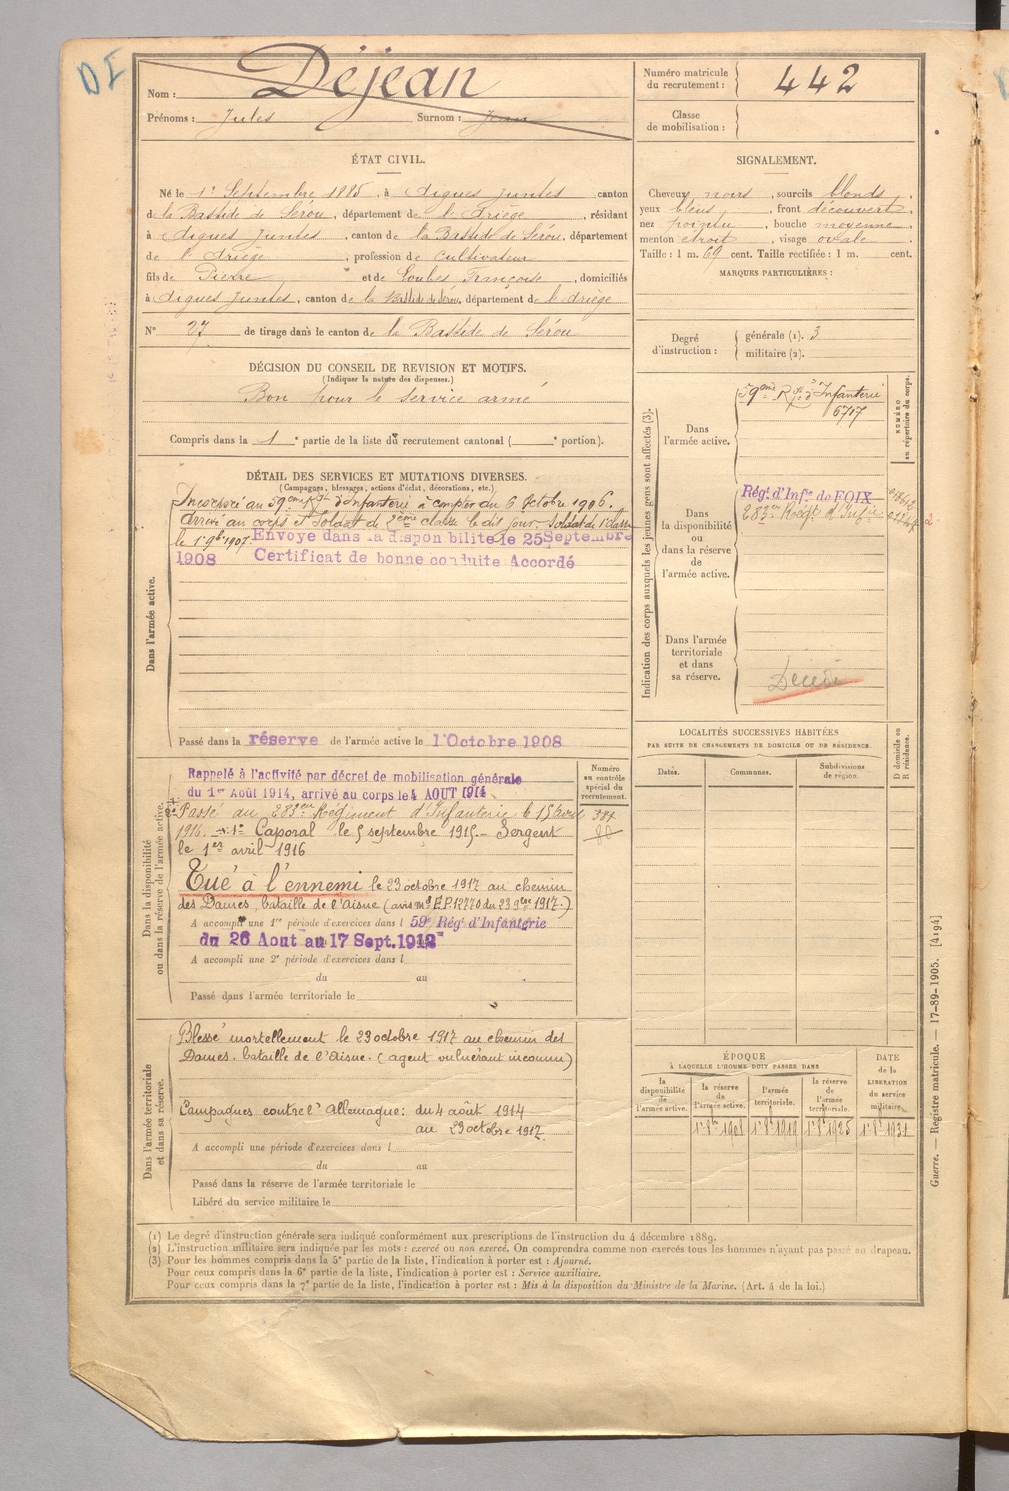 DI
Nom : Déjean
Prénoms : Jules Surnom : Jean
Numéro matricule du recrutement : 442
Classe de mobilisation :
ÉTAT CIVIL.
Né le 1er Septembre 1885, à Aigues Juntes canton
de la Bastide de Sérou, département de l'Ariège, résidant
à Aigues Juntes, canton de la Bastide de Sérou, département
de l'Ariège, profession de cultivateur
fils de Pierre et de Loubes Françoise, domiciliés
à Aigues Juntes, canton de la Bastide de Sérou, département de l'Ariège
N° 27 de tirage dans le canton de la Bastide de Sérou
SIGNALEMENT.
Cheveux noirs, sourcils blonds,
yeux bleus, front découvert,
nez pointu, bouche moyenne,
menton étroit, visage ovale.
Taille : 1 m. 69 cent. Taille rectifiée : 1 m. cent.
MARQUES PARTICULIÈRES :
Degré d'instruction : générale (1). 3
militaire (2).
DÉCISION DU CONSEIL DE REVISION ET MOTIFS.
(Indiquer la nature des dispenses.)
Bon pour le service armé
Compris dans la 1e partie de la liste du recrutement cantonal ( e portion).
DÉTAIL DES SERVICES ET MUTATIONS DIVERSES.
(Campagnes, blessures, actions d'éclat, décorations, etc.)
Dans l'armée active.
Incorporé au 59ème Rgt d'Infanterie à compter du 6 Octobre 1906.
Arrivé au corps et Soldat de 2ème classe le dit jour. Soldat de 1e classe
le 1er 9bre 1907 Envoyé dans la disponibilité le 25 Septembre
1908 Certificat de bonne conduite Accordé
Passé dans la réserve de l'armée active le 1 Octobre 1908
Indication des corps auxquels les jeunes gens sont affectés (3).
NUMÉRO au répertoire du corps.
Dans l'armée active.
59ème Rgt d'Infanterie
6717
Dans la disponibilité ou dans la réserve de l'armée active.
Régt d'Infie de FOIX
283e Régt d'Infie
Dans l'armée territoriale et dans sa réserve.
Décédé
Dans la disponibilité ou dans la réserve de l'armée active.
Numéro au contrôle spécial du recrutement.
Rappelé à l'activité par décret de mobilisation générale
du 1er Août 1914, arrivé au corps le 4 AOUT 1914
2° Passé au 283em Régiment d'Infanterie le 15 avril
1916. 1° Caporal le 5 septembre 1915. Sergent
le 1er avril 1916
Tué à l'ennemi le 23 octobre 1917 au chemin
des Dames, bataille de l'Aisne (avis ml E.P. 12270 du 23 9bre 1917.)
A accompli une 1re période d'exercices dans l 59e Régt d'Infanterie
du 26 Aout au 17 Sept. 1912
A accompli une 2e période d'exercices dans l
du au
Passé dans l'armée territoriale le
Dans l'armée territoriale et dans sa réserve.
Blessé mortellement le 23 octobre 1917 au chemin des
Dames. bataille de l'Aisne. (agent vulnérant inconnu)
Campagnes contre l'Allemagne : du 4 août 1914
au 23 octobre 1917.
A accompli une période d'exercices dans l
du au
Passé dans la réserve de l'armée territoriale le
Libéré du service militaire le
LOCALITÉS SUCCESSIVES HABITÉES
PAR SUITE DE CHANGEMENTS DE DOMICILE OU DE RÉSIDENCE.
D domicile ou R résidence.
Dates. Communes. Subdivisions de région.
ÉPOQUE
À LAQUELLE L'HOMME DOIT PASSER DANS
DATE de la LIBÉRATION du service militaire.
la disponibilité de l'armée active. la réserve de l'armée active. l'armée territoriale. la réserve de l'armée territoriale.
1er 8bre 1908 1er 8bre 1919 1er 8bre 1925 1er 8bre 1931
Guerre. — Registre matricule. — 17-89-1905. [4194]
(1) Le degré d'instruction générale sera indiqué conformément aux prescriptions de l'instruction du 4 décembre 1889.
(2) L'instruction militaire sera indiquée par les mots : exercé ou non exercé. On comprendra comme non exercés tous les hommes n'ayant pas passé au drapeau.
(3) Pour les hommes compris dans la 5e partie de la liste, l'indication à porter est : Ajourné.
Pour ceux compris dans la 6e partie de la liste, l'indication à porter est : Service auxiliaire.
Pour ceux compris dans la 7e partie de la liste, l'indication à porter est : Mis à la disposition du Ministre de la Marine. (Art. 4 de la loi.)